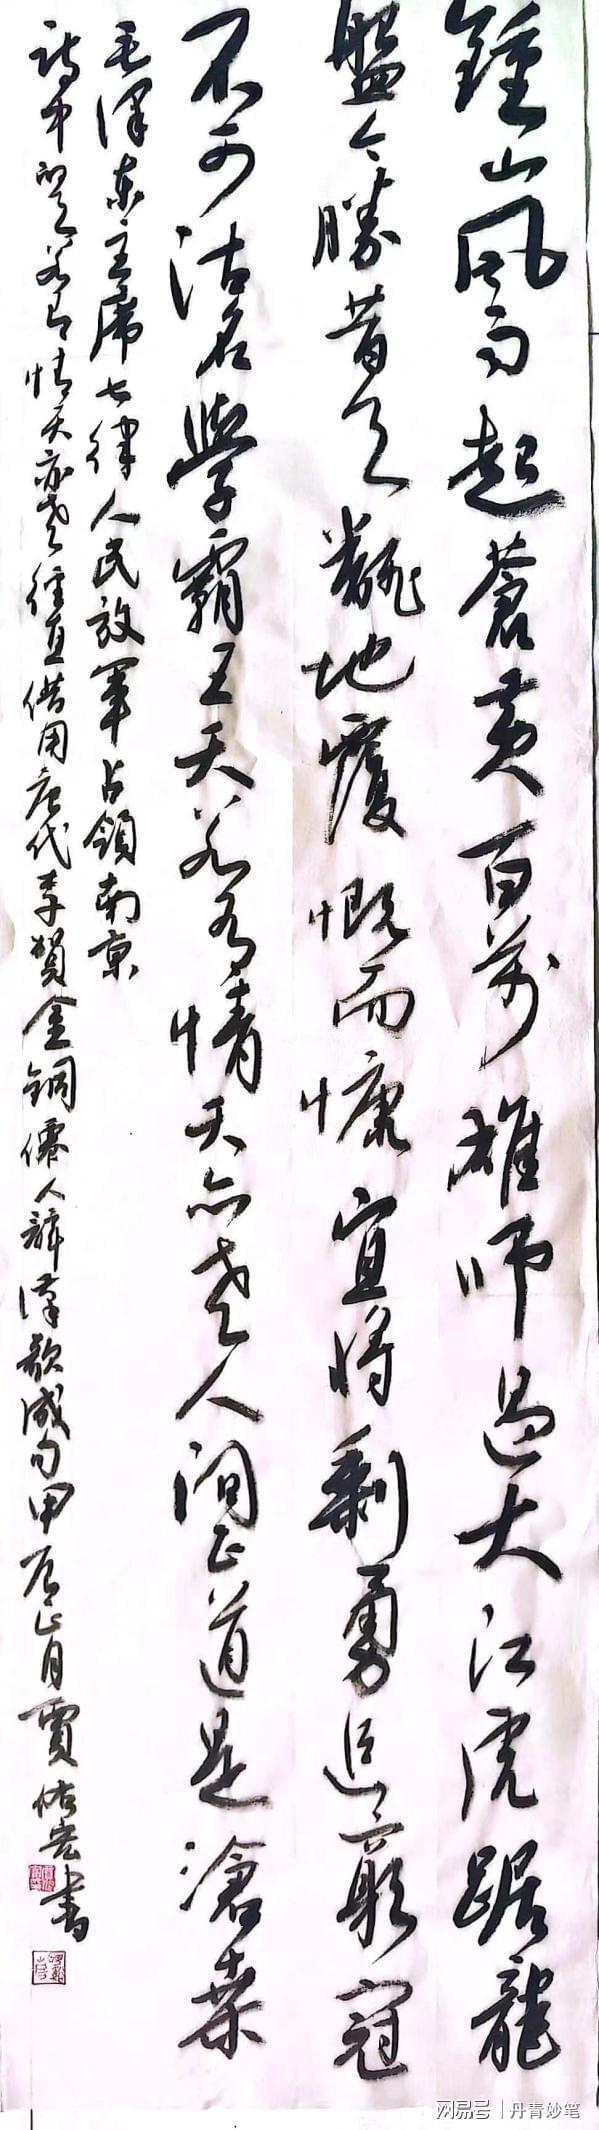 鍾山風雨起蒼黃百萬雄師過大江虎踞龍
盤今勝昔天翻地覆慨而慷宜將剩勇追窮寇
不可沽名學霸王天若有情天亦老人間正道是滄桑
毛澤東主席七律人民放軍占領南京
詩中天若有情天亦老徑直借用唐代李賀金銅僊人辭漢歌成句甲辰正月賈佑書
网易号 | 丹青妙笔